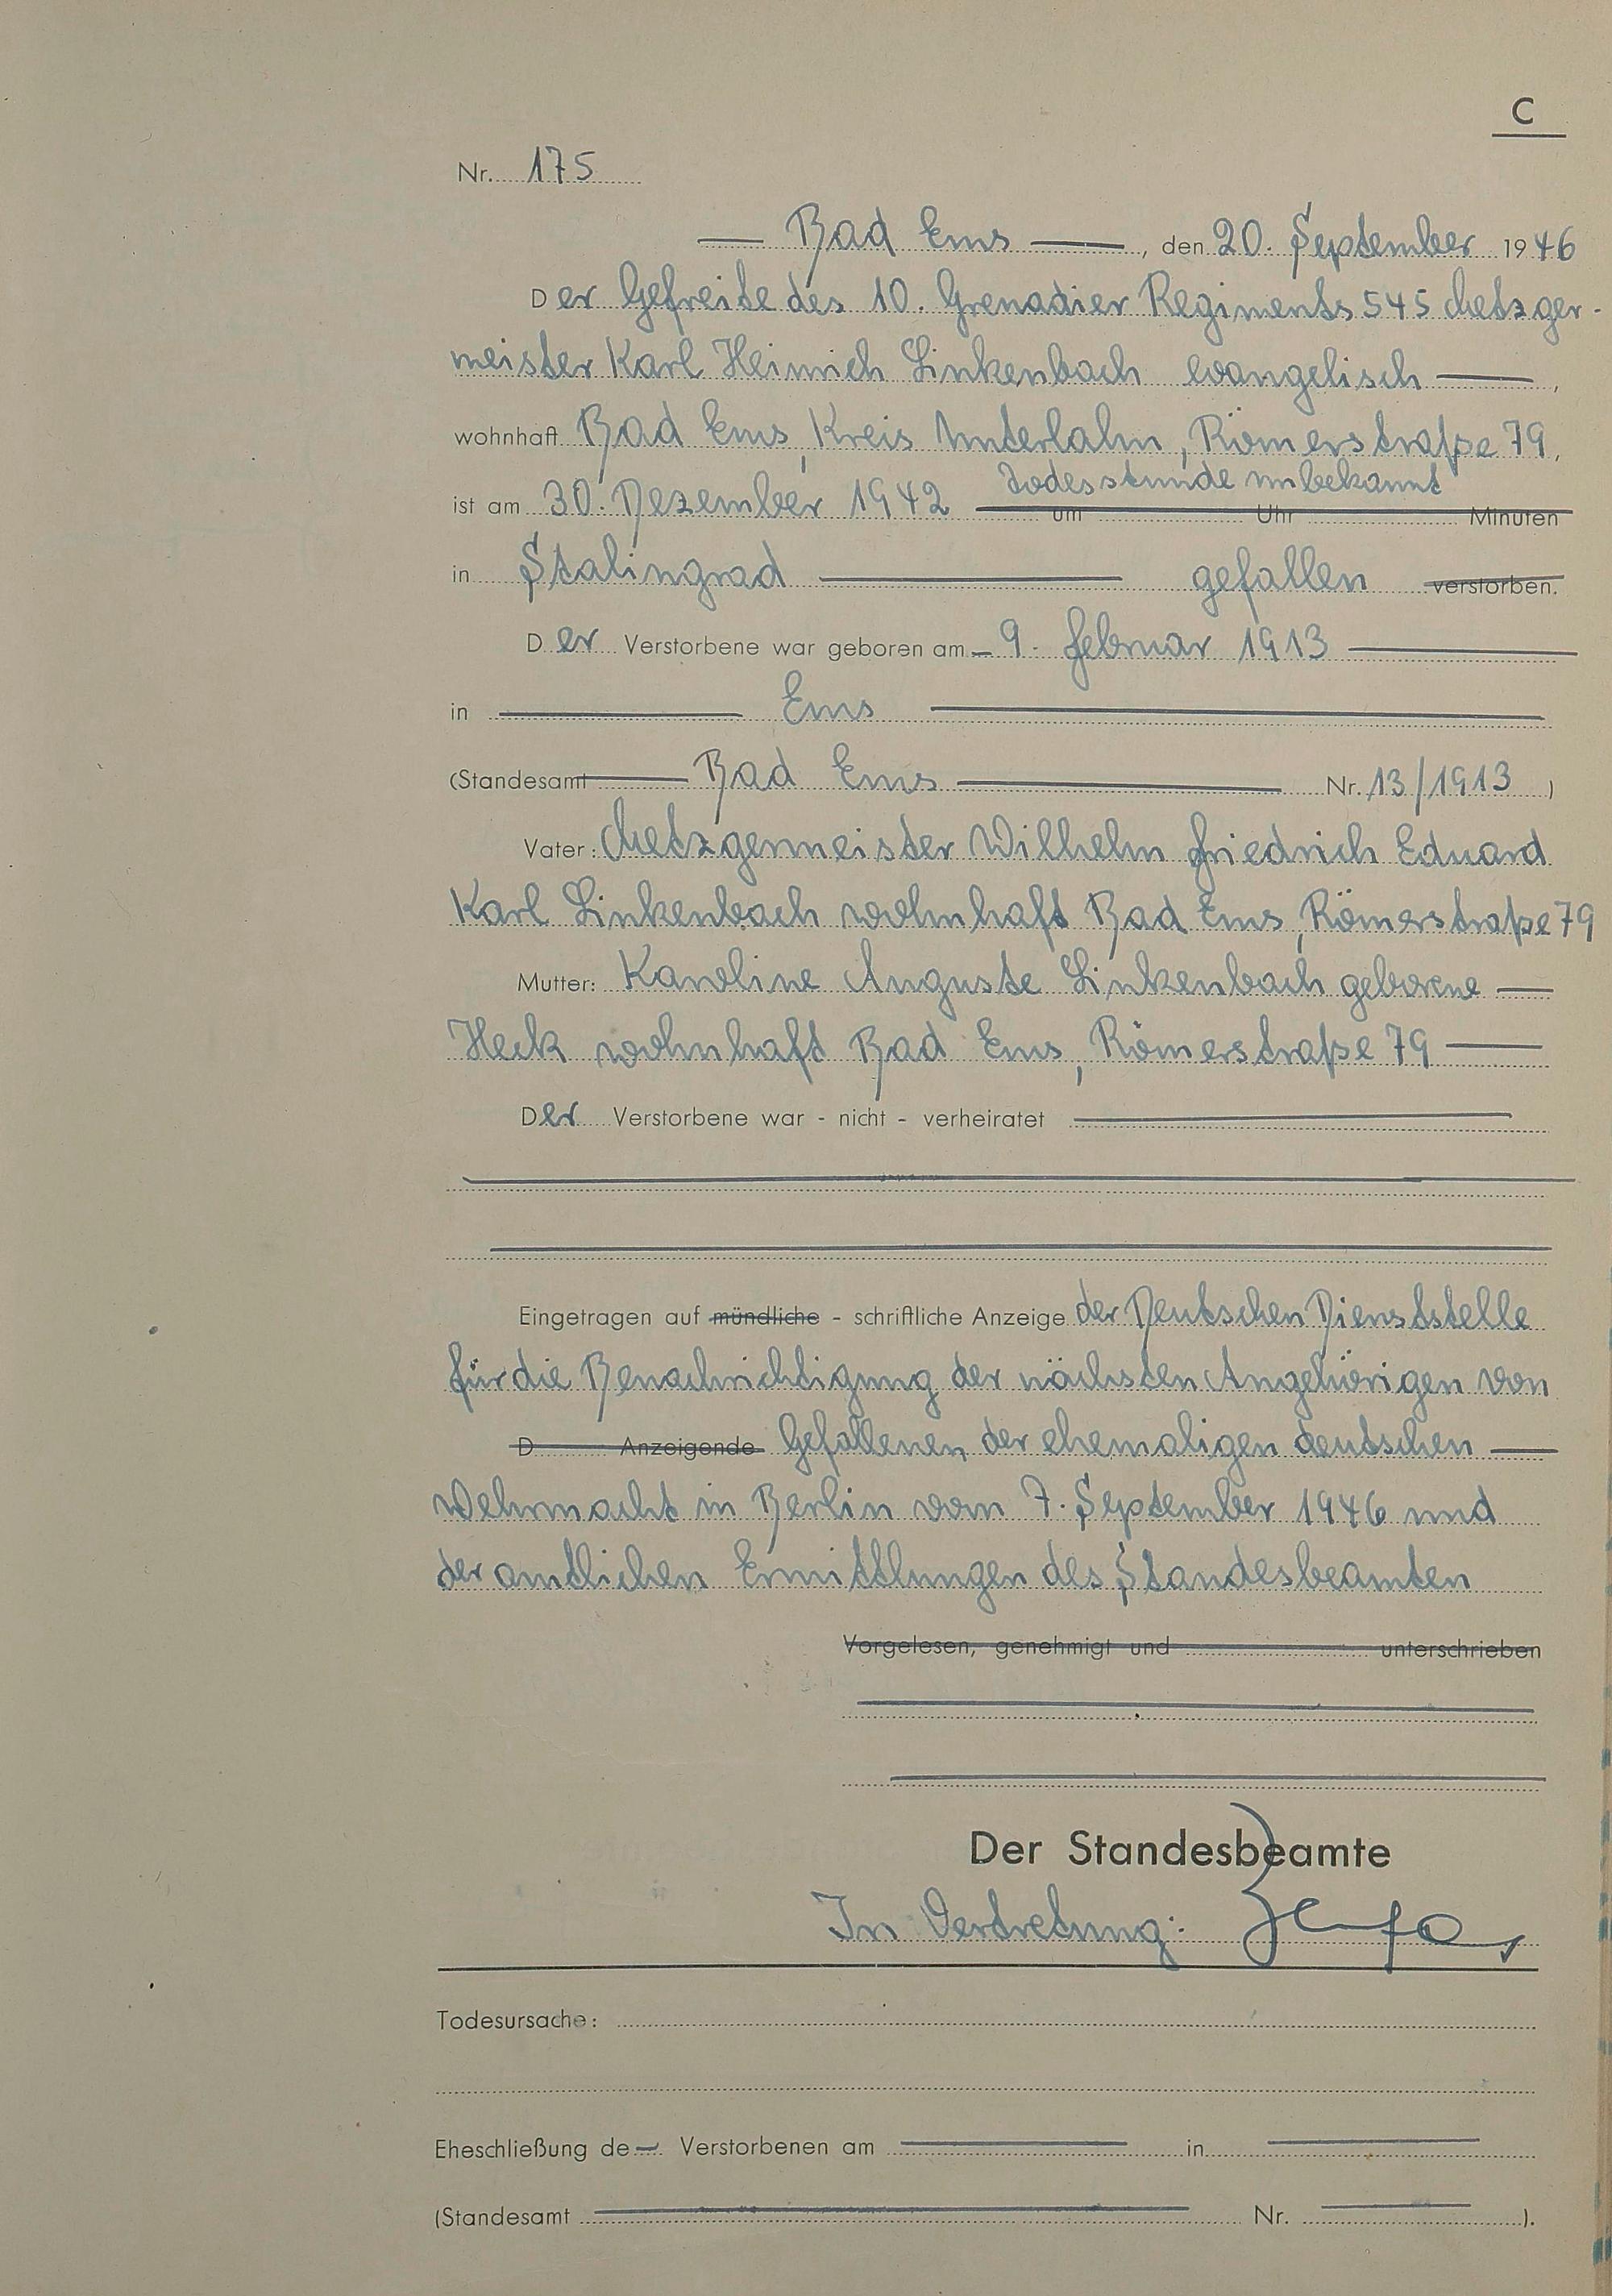 C
Nr. 175
Bad Ems, den 20. September 1946
Der Gefreite des 10. Grenadier Regiments 545 Metzger-
meister Karl Heinrich Linkenbach evangelisch,
wohnhaft Bad Ems, Kreis Unterlahn, Römerstraße 79,
Todesstunde unbekannt
ist am 30. Dezember 1942 um Uhr Minuten
in Stalingrad gefallen verstorben.
Der Verstorbene war geboren am 9. Februar 1913
in Ems
(Standesamt Bad Ems Nr. 13/1913)
Vater: Metzgermeister Wilhelm Friedrich Eduard
Karl Linkenbach wohnhaft Bad Ems, Römerstraße 79
Mutter: Karoline Auguste Linkenbach geborene
Heck wohnhaft Bad Ems, Römerstraße 79
Der Verstorbene war - nicht - verheiratet
Eingetragen auf mündliche - schriftliche Anzeige der Deutschen Dienststelle
für die Benachrichtigung der nächsten Angehörigen von
D Anzeigende Gefallenen der ehemaligen deutschen
Wehrmacht in Berlin vom 7. September 1946 und
der amtlichen Ermittlungen des Standesbeamten
Vorgelesen, genehmigt und unterschrieben
Der Standesbeamte
In Vertretung:
Todesursache:
Eheschließung de Verstorbenen am in
(Standesamt Nr. ).